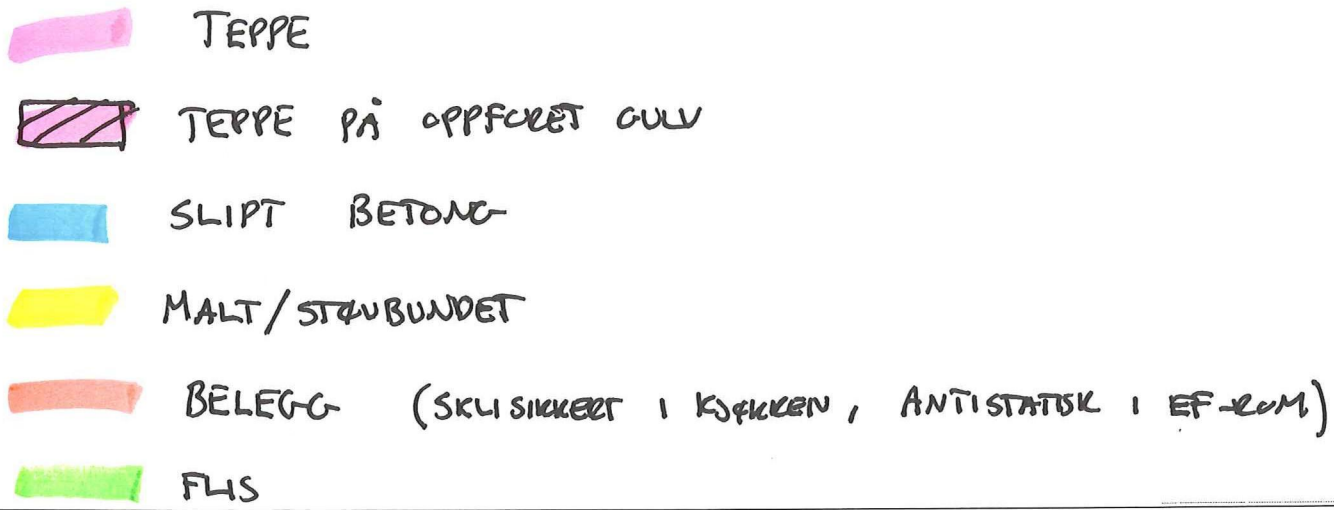 TEPPE
TEPPE PÅ OPPFORET GULV
SLIPT BETONG
MALT/STØVBUNDET
BELEGG (SKLISIKKERT I KJØKKEN, ANTISTATISK I EF-ROM)
FLIS